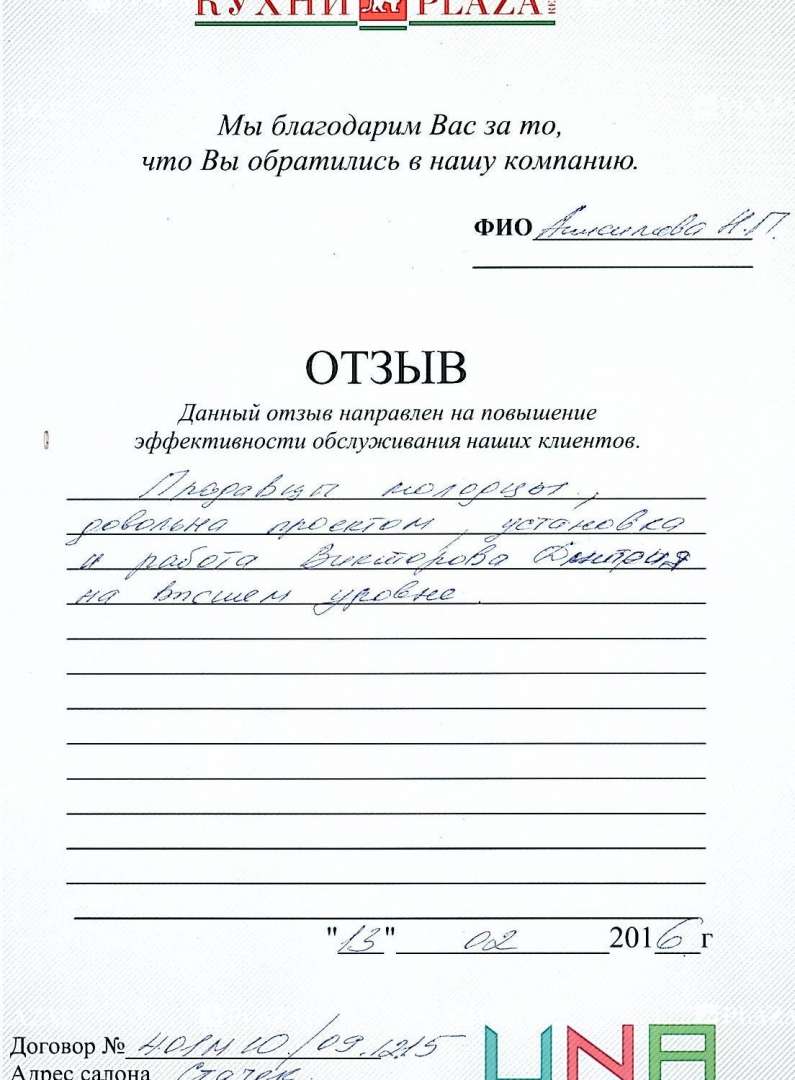 КУХНИ PLAZA
Мы благодарим Вас за то,
что Вы обратились в нашу компанию.
ФИО Н.П.
ОТЗЫВ
Данный отзыв направлен на повышение
эффективности обслуживания наших клиентов.
Продавцы молодцы.,
довольна проектом, установка
и работа Викторова Дмитрия
на высшем уровне.
"13" 02 2016 г
Договор №
Адрес салона Стачек.
UNA